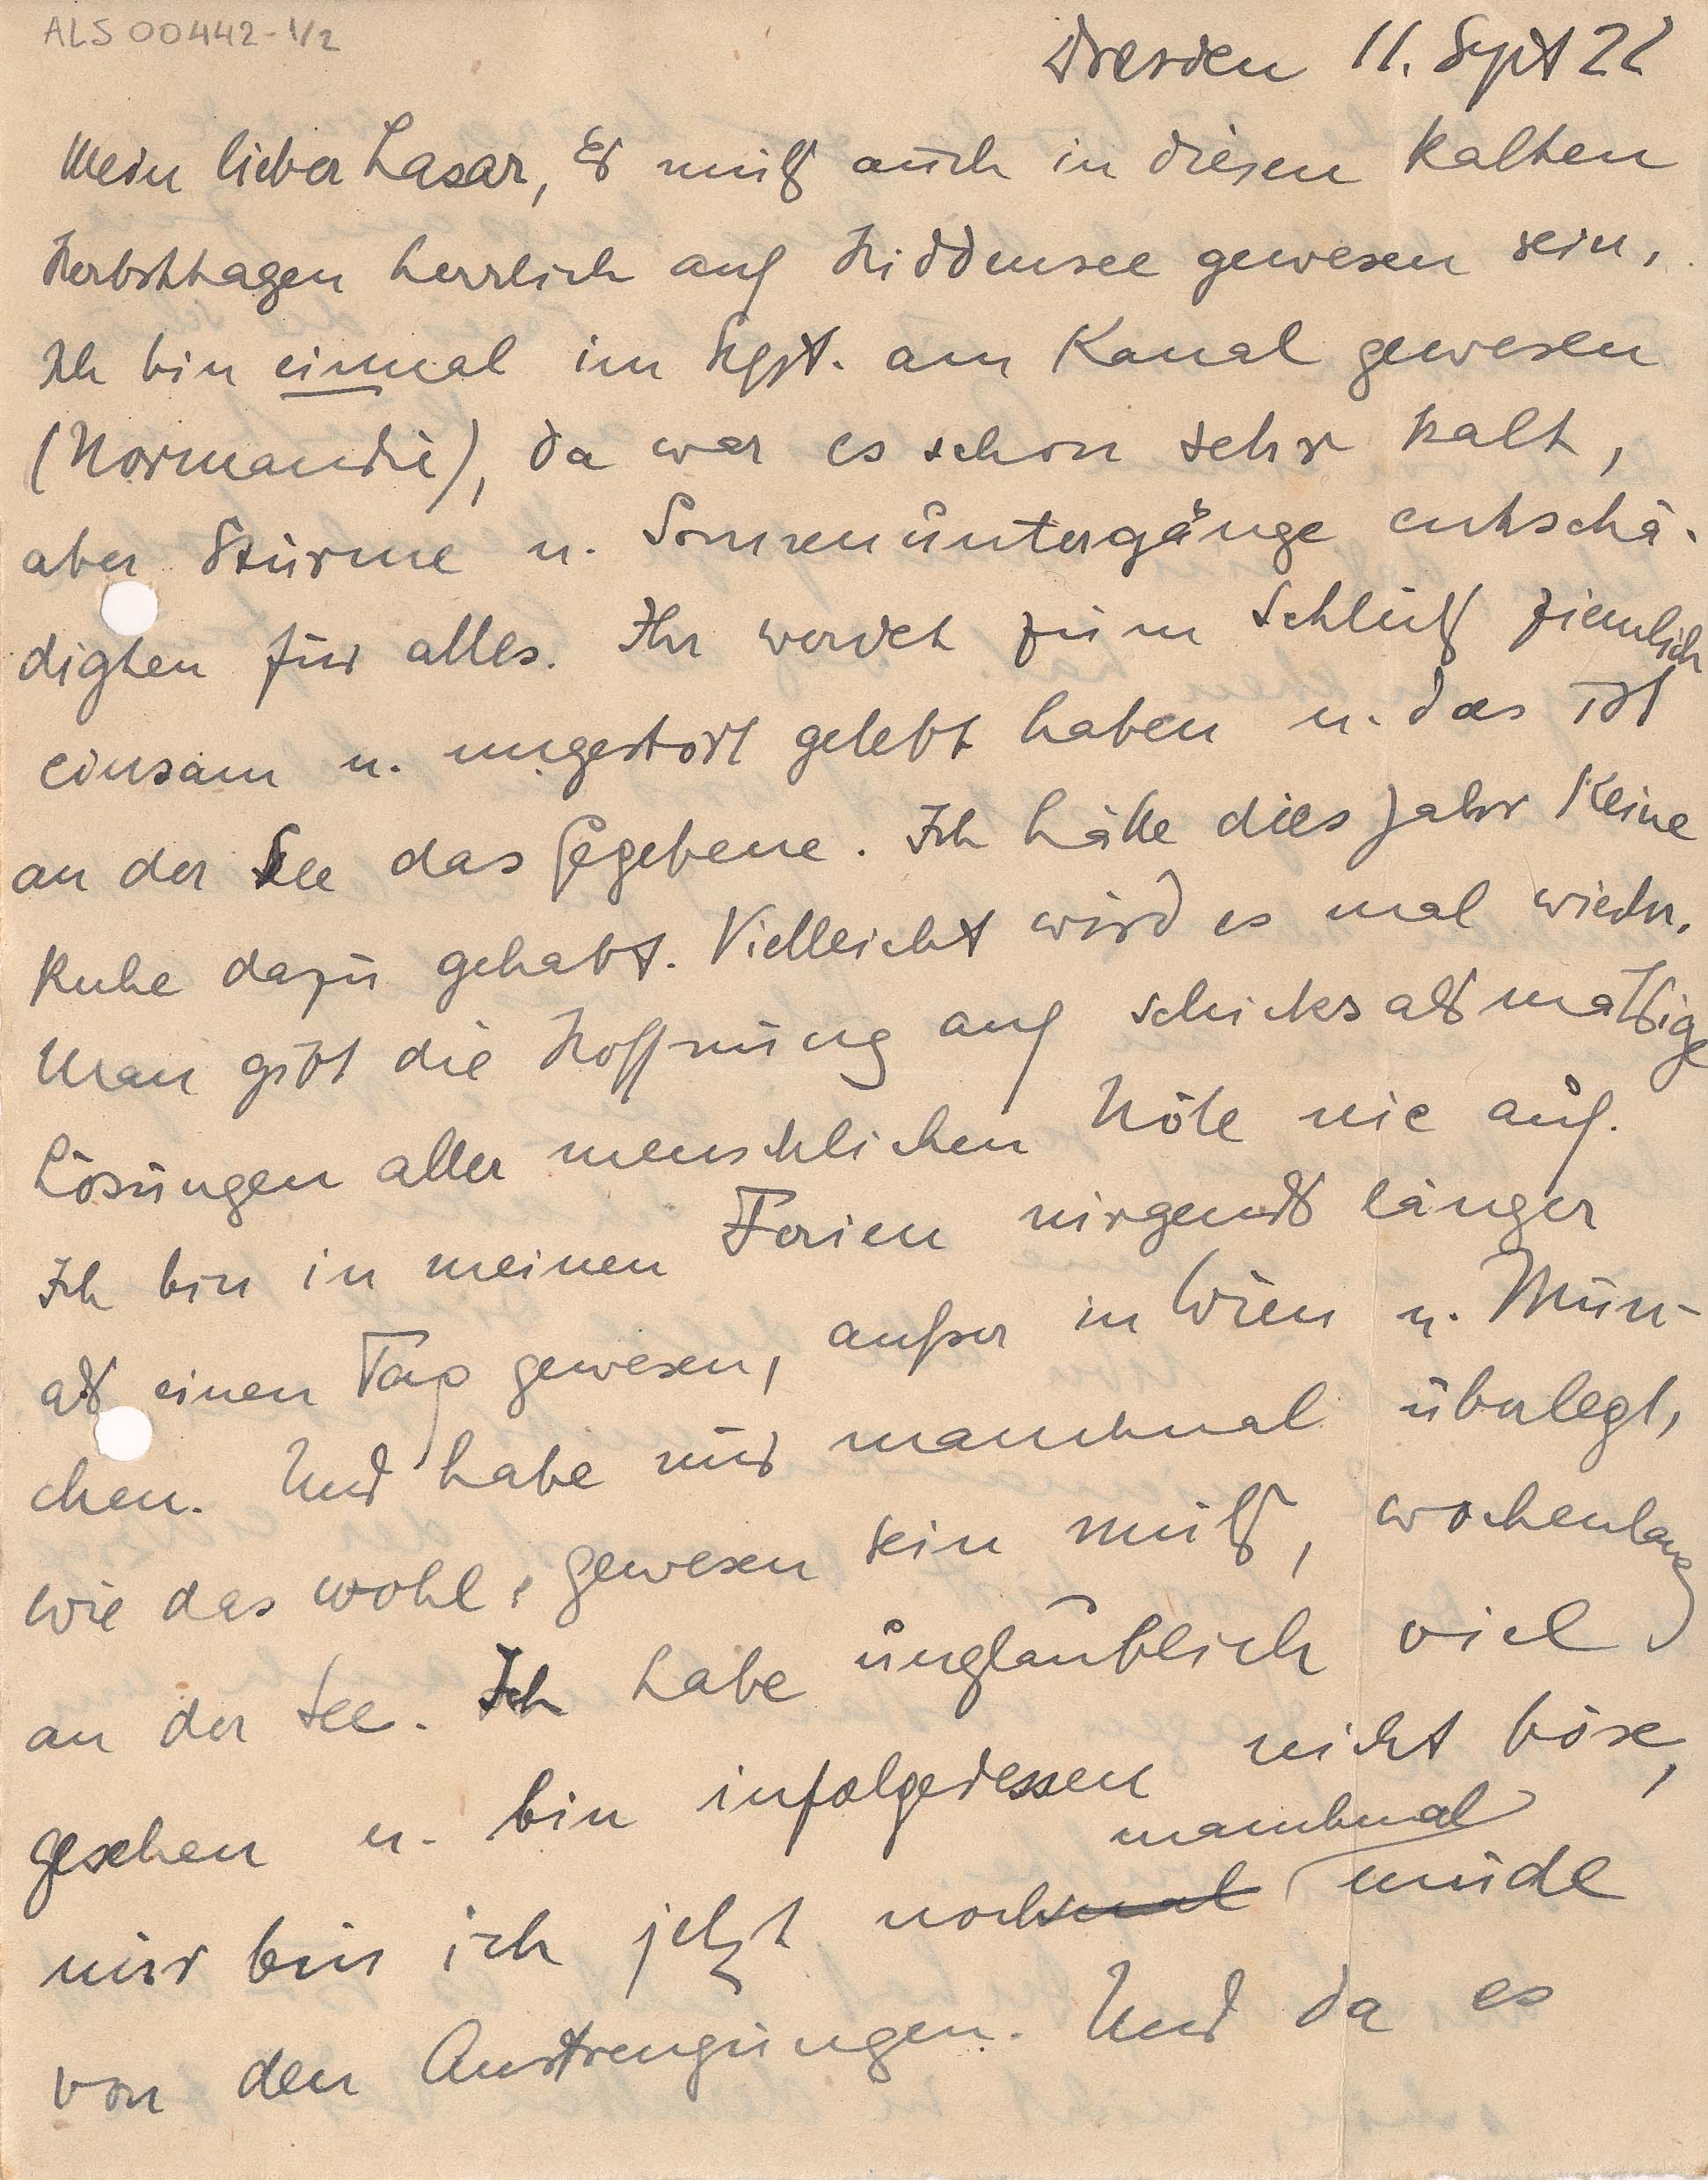 ALS 00442-1/2
Dresden 11. Sept 22
Mein lieber Lasar, Es muß auch in diesen kalten
Herbsttagen herrlich auf Hiddensee gewesen sein,
Ich bin einmal im Sept. am Kanal gewesen
(Normandie), da war es schon sehr kalt,
aber Stürme u. Sonnenuntergänge entschä-
digten für alles. Ihr werdet zum Schluß ziemlich
einsam u. ungestört gelebt haben u. das ist
an der See das Gegebene. Ich hätte dies Jahr keine
Ruhe dazu gehabt. Vielleicht wird es mal wieder.
Man gibt die Hoffnung auf schicksalsmäßige
Lösungen aller menschlichen Nöte nie auf.
Ich bin in meinen Ferien nirgends länger
als einen Tag gewesen, außer in Wien u. Mün-
chen. Und habe mir manchmal überlegt,
wie das wohl gewesen sein muß, wochenlang
an der See. Ich habe unglaublich viel
gesehen u. bin infolgedessen nicht böse,
manchmal
nur bin ich jetzt nochmal müde
von den Anstrengungen. Und da es